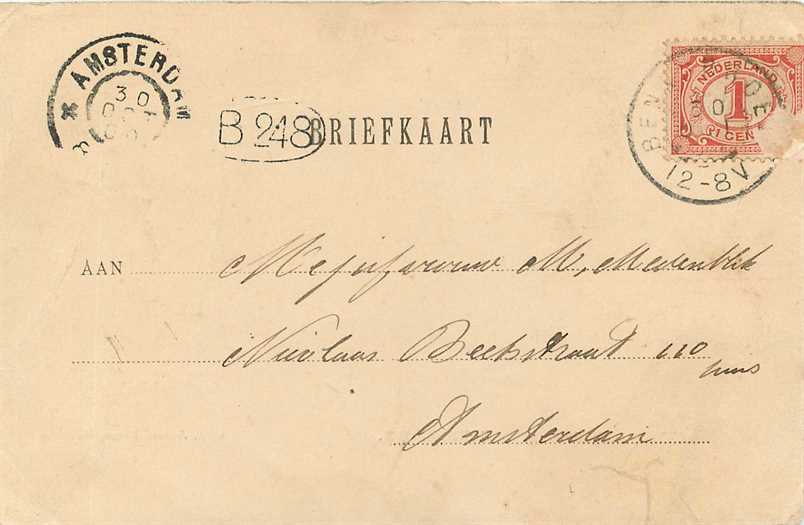 * AMSTERDAM
30
B 248
BRIEFKAART
NEDERLAND
1
1 CENT
BEN
12-8V
AAN Mejufvrouw M. Medenblik
Nicolaas Beetsstraat 110
huis
Amsterdam